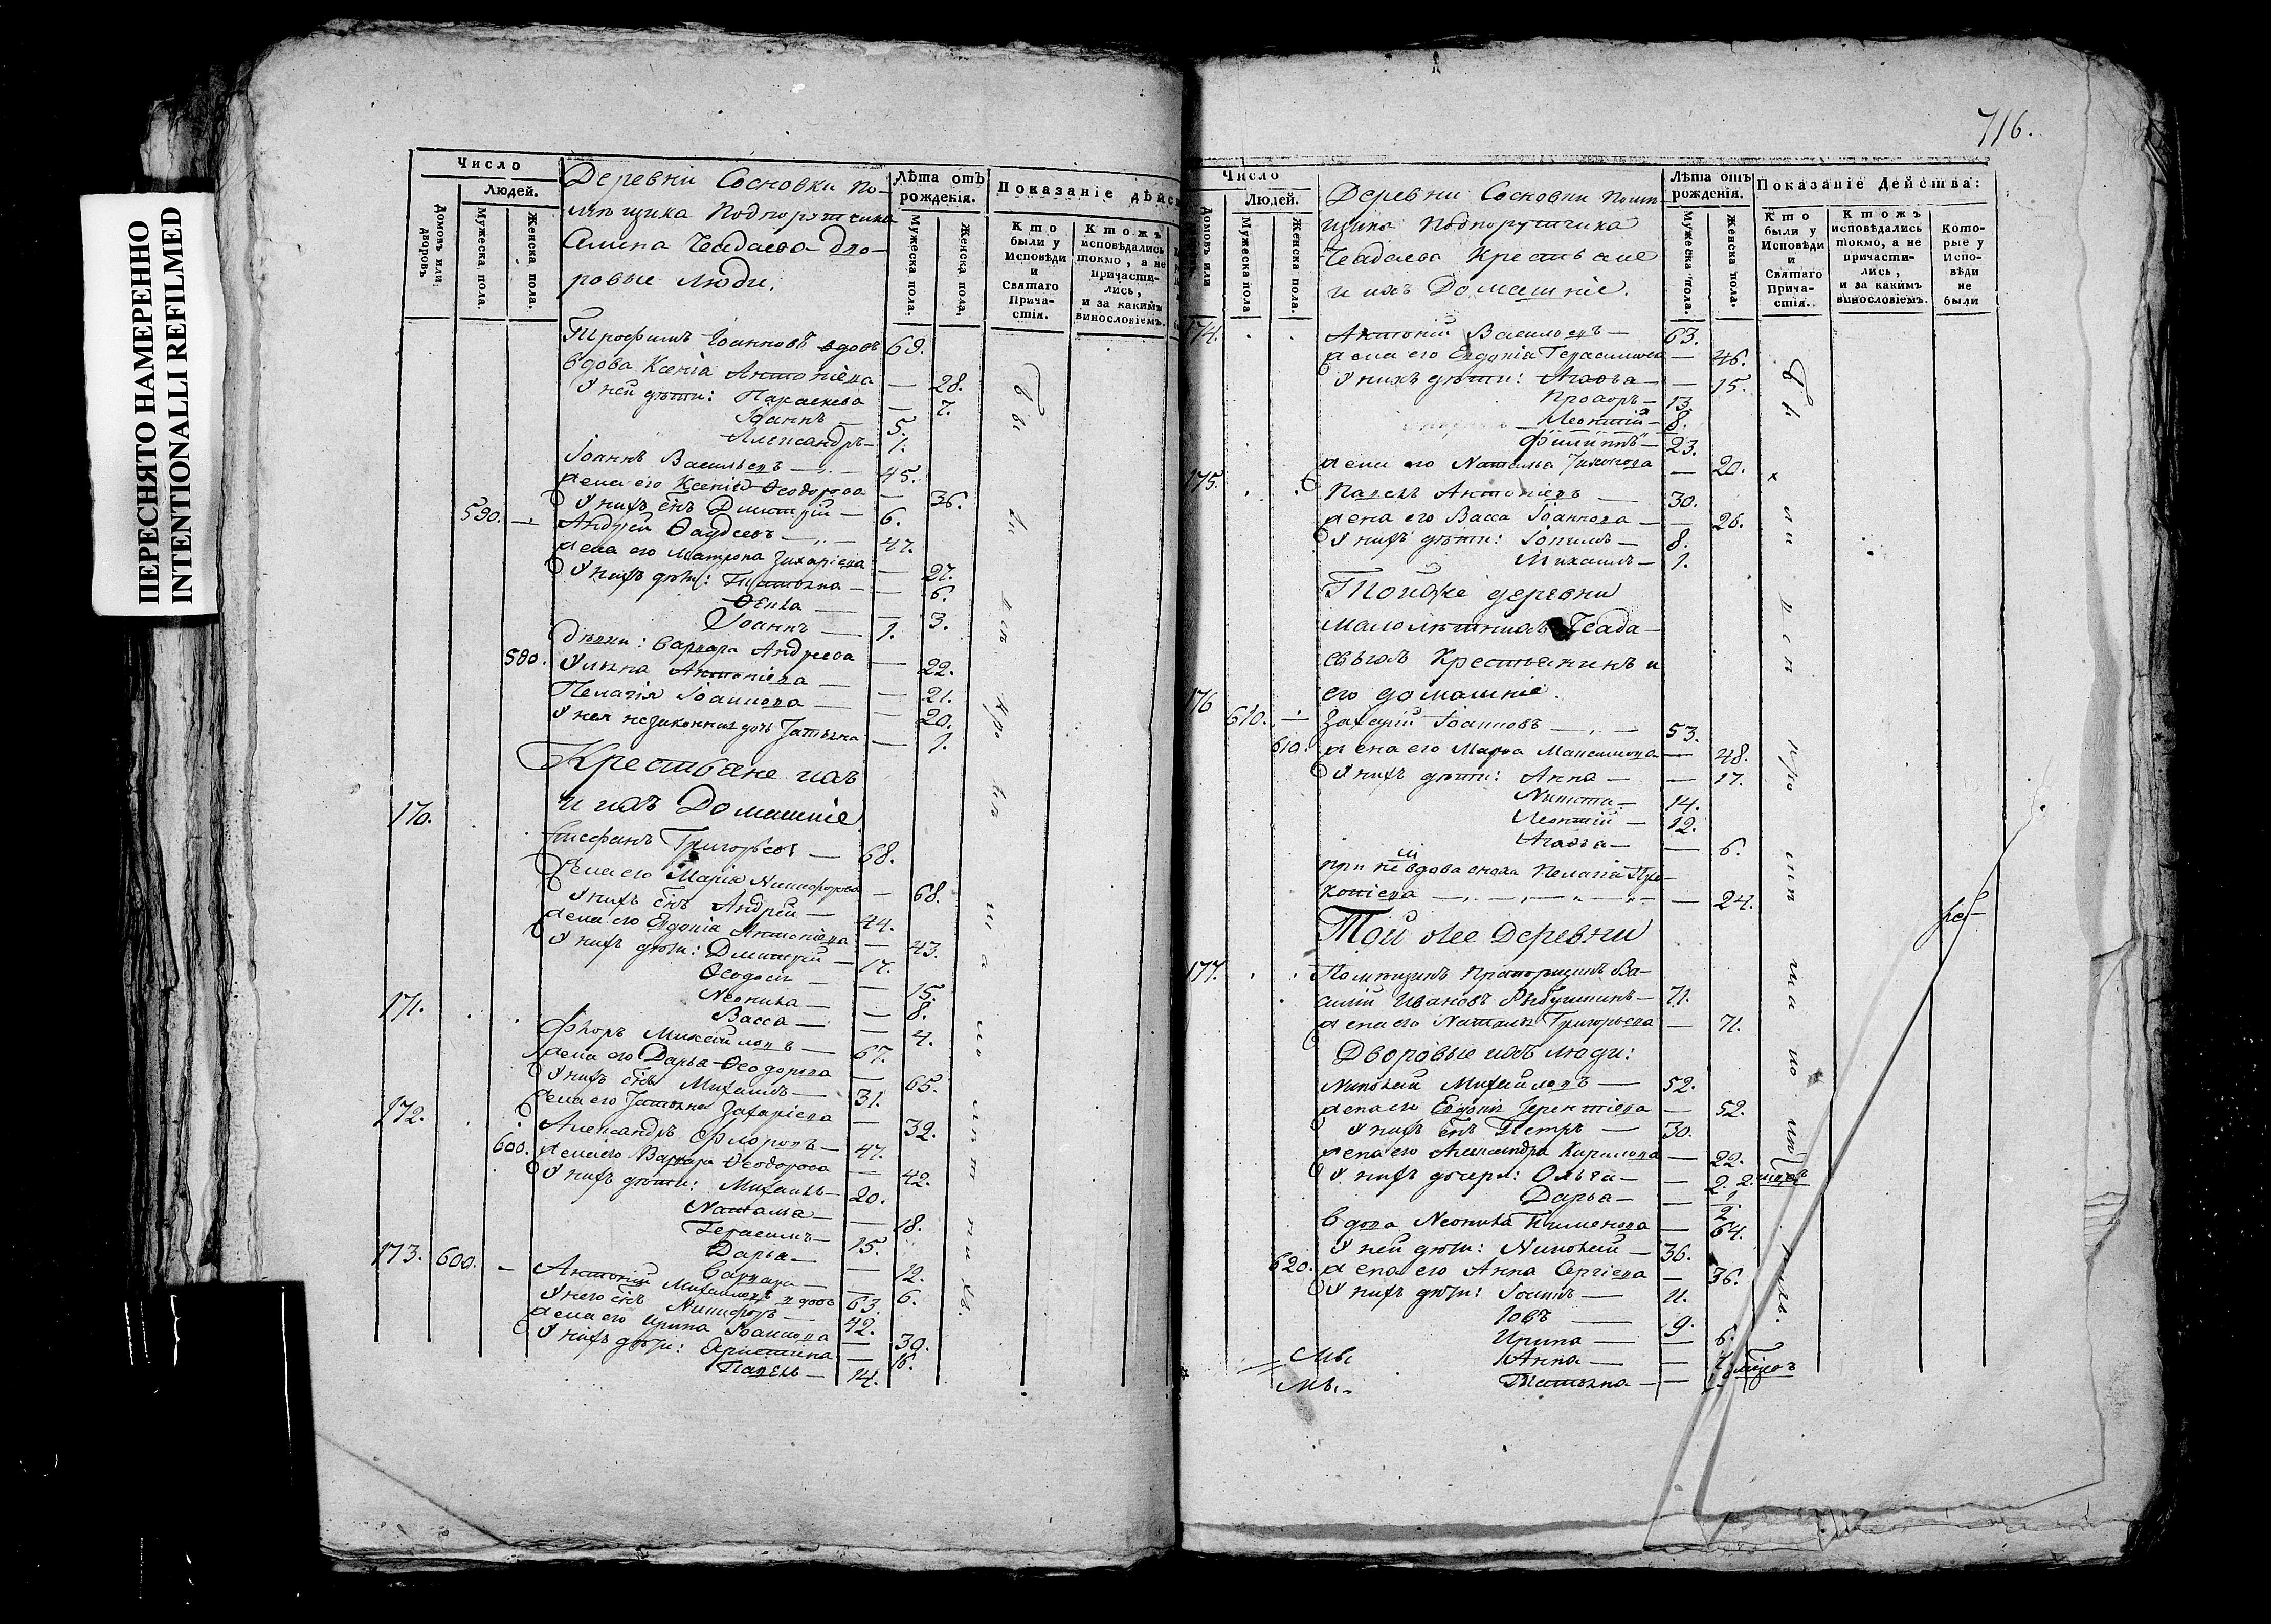 ПЕРЕСНЯТО НАМЕРЕННО
INTENTIONALLI REFILMED
Число
Людей.
Домовъ или дворовъ
Мужеска пола.
Женска пола.
Деревни Сосновки по-
мѣщика Подпорутчика
Чеадаева дво-
ровые люди.
Лѣта отъ рожденія.
Мужеска пола.
Женска пола.
Показаніе дѣйс
Кто были у Исповѣди и Святаго Прича-стія.
Ктожъ исповѣдались токмо, а не причасти-лись, и за какимъ винословіемъ.
Трофимъ Іоанновъ вдовъ 69.
вдова Ксенія Антоніева — 28.
У ней дѣти: Параскева — 7.
Іоаннъ — 5.
Александръ — 1.
Іоаннъ Васильевъ — 45.
жена его Ксенія Ѳеодорова — 36.
У нихъ снъ Димитрій — 6.
590. — Андрей Ѳаддеевъ — 47.
жена его Матрона Захаріева — 27.
У нихъ дѣти: Татьяна — 6.
Ѳекла — 3.
Іоаннъ — 1.
дѣвки: Варвара Андреева — 22.
580. Ульяна Антоніева — 21.
Пелагія Іоаннова — 20.
У нея незаконная дочь Татьяна — 1.
Крестьяне ихъ
и ихъ Домашніе
170. Стефанъ Григорьевъ — 68.
Жена его Марія Никифорова — 68.
У нихъ снъ Андрей — 44.
жена его Евдокія Антоніева — 43.
У нихъ дѣти: Димитрій — 17.
Ѳеодосія — 15.
Неонила — 8.
Васса — 4.
171. Флоръ Михайловъ — 67.
жена его Дарья Ѳеодорова — 65.
У нихъ снъ Михаилъ — 31.
жена его Татьяна Захаріева — 32.
172. Александръ Флоровъ — 47.
600. жена его Варвара Ѳеодорова — 42.
У нихъ дѣти: Михаилъ — 20.
Наталья — 18.
Герасимъ — 15.
Дарья — 12.
Варвара — 6.
173. 600. — Антоній Михайловъ вдовъ 63.
У него снъ Никифоръ — 42.
жена его Ирина Іоаннова — 39.
У нихъ дѣти: Христина — 16.
Павелъ — 14.
716.
Число
Людей.
Домовъ или
Мужеска пола
Женска пола.
Деревни Сосновки помѣ-
щика Подпорутчика
Чеадаева Крестьяне
и ихъ Домашніе.
Лѣта отъ рожденія.
Мужеска пола.
Женска пола.
Показаніе Дейсшва:
Кто были у Исповѣди и Святаго Прича-стія.
Ктожъ исповѣдались токмо, а не причасти-лись, и за какимъ винословіемъ.
Кото-рые у Испо-вѣди не были
174. Антоній Васильевъ — 63.
жена его Евдокія Герасимова — 46.
У нихъ дѣти: Агаѳья — 15.
Прохоръ — 13.
Леонтій — 8.
Филиппъ — 23.
жена его Наталья Тихонова — 20.
175. Павелъ Антоніевъ — 30.
жена его Васса Іоаннова — 26.
У нихъ дѣти: Іоакимъ — 8.
Михаилъ — 1.
Тойже деревни
малолѣтнихъ Чеада-
евыхъ Крестьянинъ и
его домашніе.
176 610. — Захарій Іоанновъ — 53.
610. жена его Марѳа Максимова — 48.
У нихъ дѣти: Анна — 17.
Никита — 14.
Леонтій — 12.
Агаѳья — 6.
при ней вдова сноха Пелагія Про-
копіева — 24.
Той же Деревни
177. Помѣщикъ Прапорщикъ Ва-
силій Ивановъ Рыбушкинъ — 71.
жена его Наталья Григорьева — 71.
Дворовые ихъ люди:
Николай Михайловъ — 52.
жена его Евдокія Терентіева — 52.
У нихъ снъ Петръ — 30.
жена его Александра Кирилова — 22.
У нихъ дщери: Ольга — 2.
Дарья —
вдова Неонила Пименова — 64.
У ней дѣти: Николай — 36.
620. жена его Анна Сергіева — 36.
У нихъ дѣти: Іоакимъ — 11.
Іовъ — 9.
Ирина — 6.
Анна —
Татьяна —